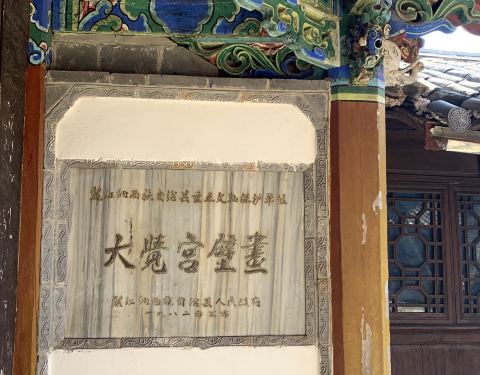 丽江纳西族自治县重点文物保护单位
大覺宫壁畫
丽江纳西族自治县人民政府
一九八二年公布